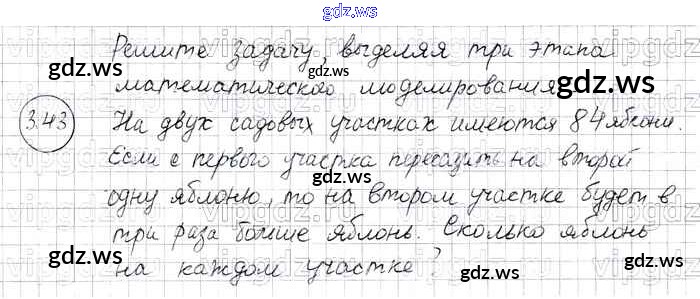 gdz.ws
Решите задачу, выделяя три этапа
gdz.ws gdz.ws
математического моделирования
gdz.ws
3.43 На двух садовых участках имеются 84 яблони.
Если с первого участка пересадить на второй
gdz.ws
одну яблоню, то на втором участке будет в
gdz.ws
три раза больше яблонь. Сколько яблонь
gdz.ws gdz.ws
на каждом участке?
gdz.ws